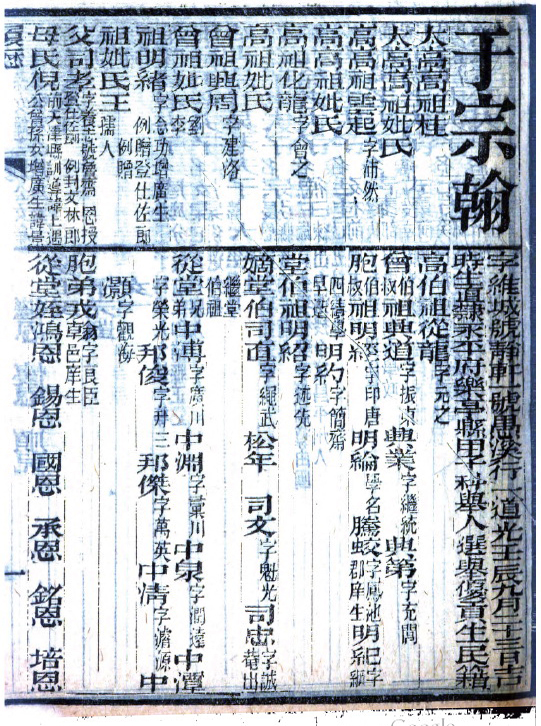 于宗翰
字維城號靜軒一號愚溪行一道光壬辰九月二十三日吉
時生直隸永平府樂亭縣甲子科舉人選舉優貢生民籍
太高高祖桂
太高高祖妣氏
高高祖雲起字沛然
高高祖妣氏
高祖化龍字會之
高祖妣氏
曾祖興周字建洛
曾祖妣氏劉李
祖明緒字念功增廣生例贈登仕佐郎
祖妣氏王例贈孺人
父司孝
母氏倪
高伯祖從龍字元之
曾伯叔祖興道字振東興業字繼統興第字充閭
胞伯叔祖明經字印唐明綸學名騰蛟字鳳池郡庠生明紀字
早逝四績學明約字簡齋
堂伯祖明紹字述先
嫡堂伯司直字繩武松年司文字魁光司忠字誠菴出
繼堂伯祖
從堂兄弟中溥字廣川中淵字彙川中泉字潤遠中潭
字榮光邦俊字升三邦傑字萬英中清字澹源中
灝字觀海
胞弟戎翰字良臣邑庠生
從堂姪鴻恩錫恩國恩承恩銘恩培恩